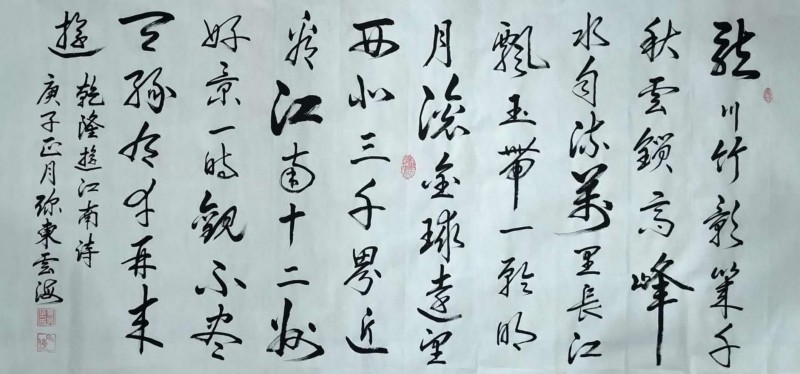 龍川竹影幾千
秋雲鎖高峰
水自流萬里長江
飄玉帶一輪明
月滾金球遠望
西北三千界近
看江南十二州
好景一時觀不盡
天緣有分再来
遊
乾隆遊江南詩
庚子正月弥東雲海